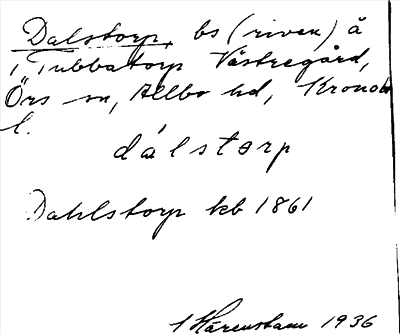 Dalstorp, bs (riven) å
Tubbatorp Västregård,
Örs sn, Allbo hd, Kronob
l.
dálstorp
Dahlstorp kb 1861
1936